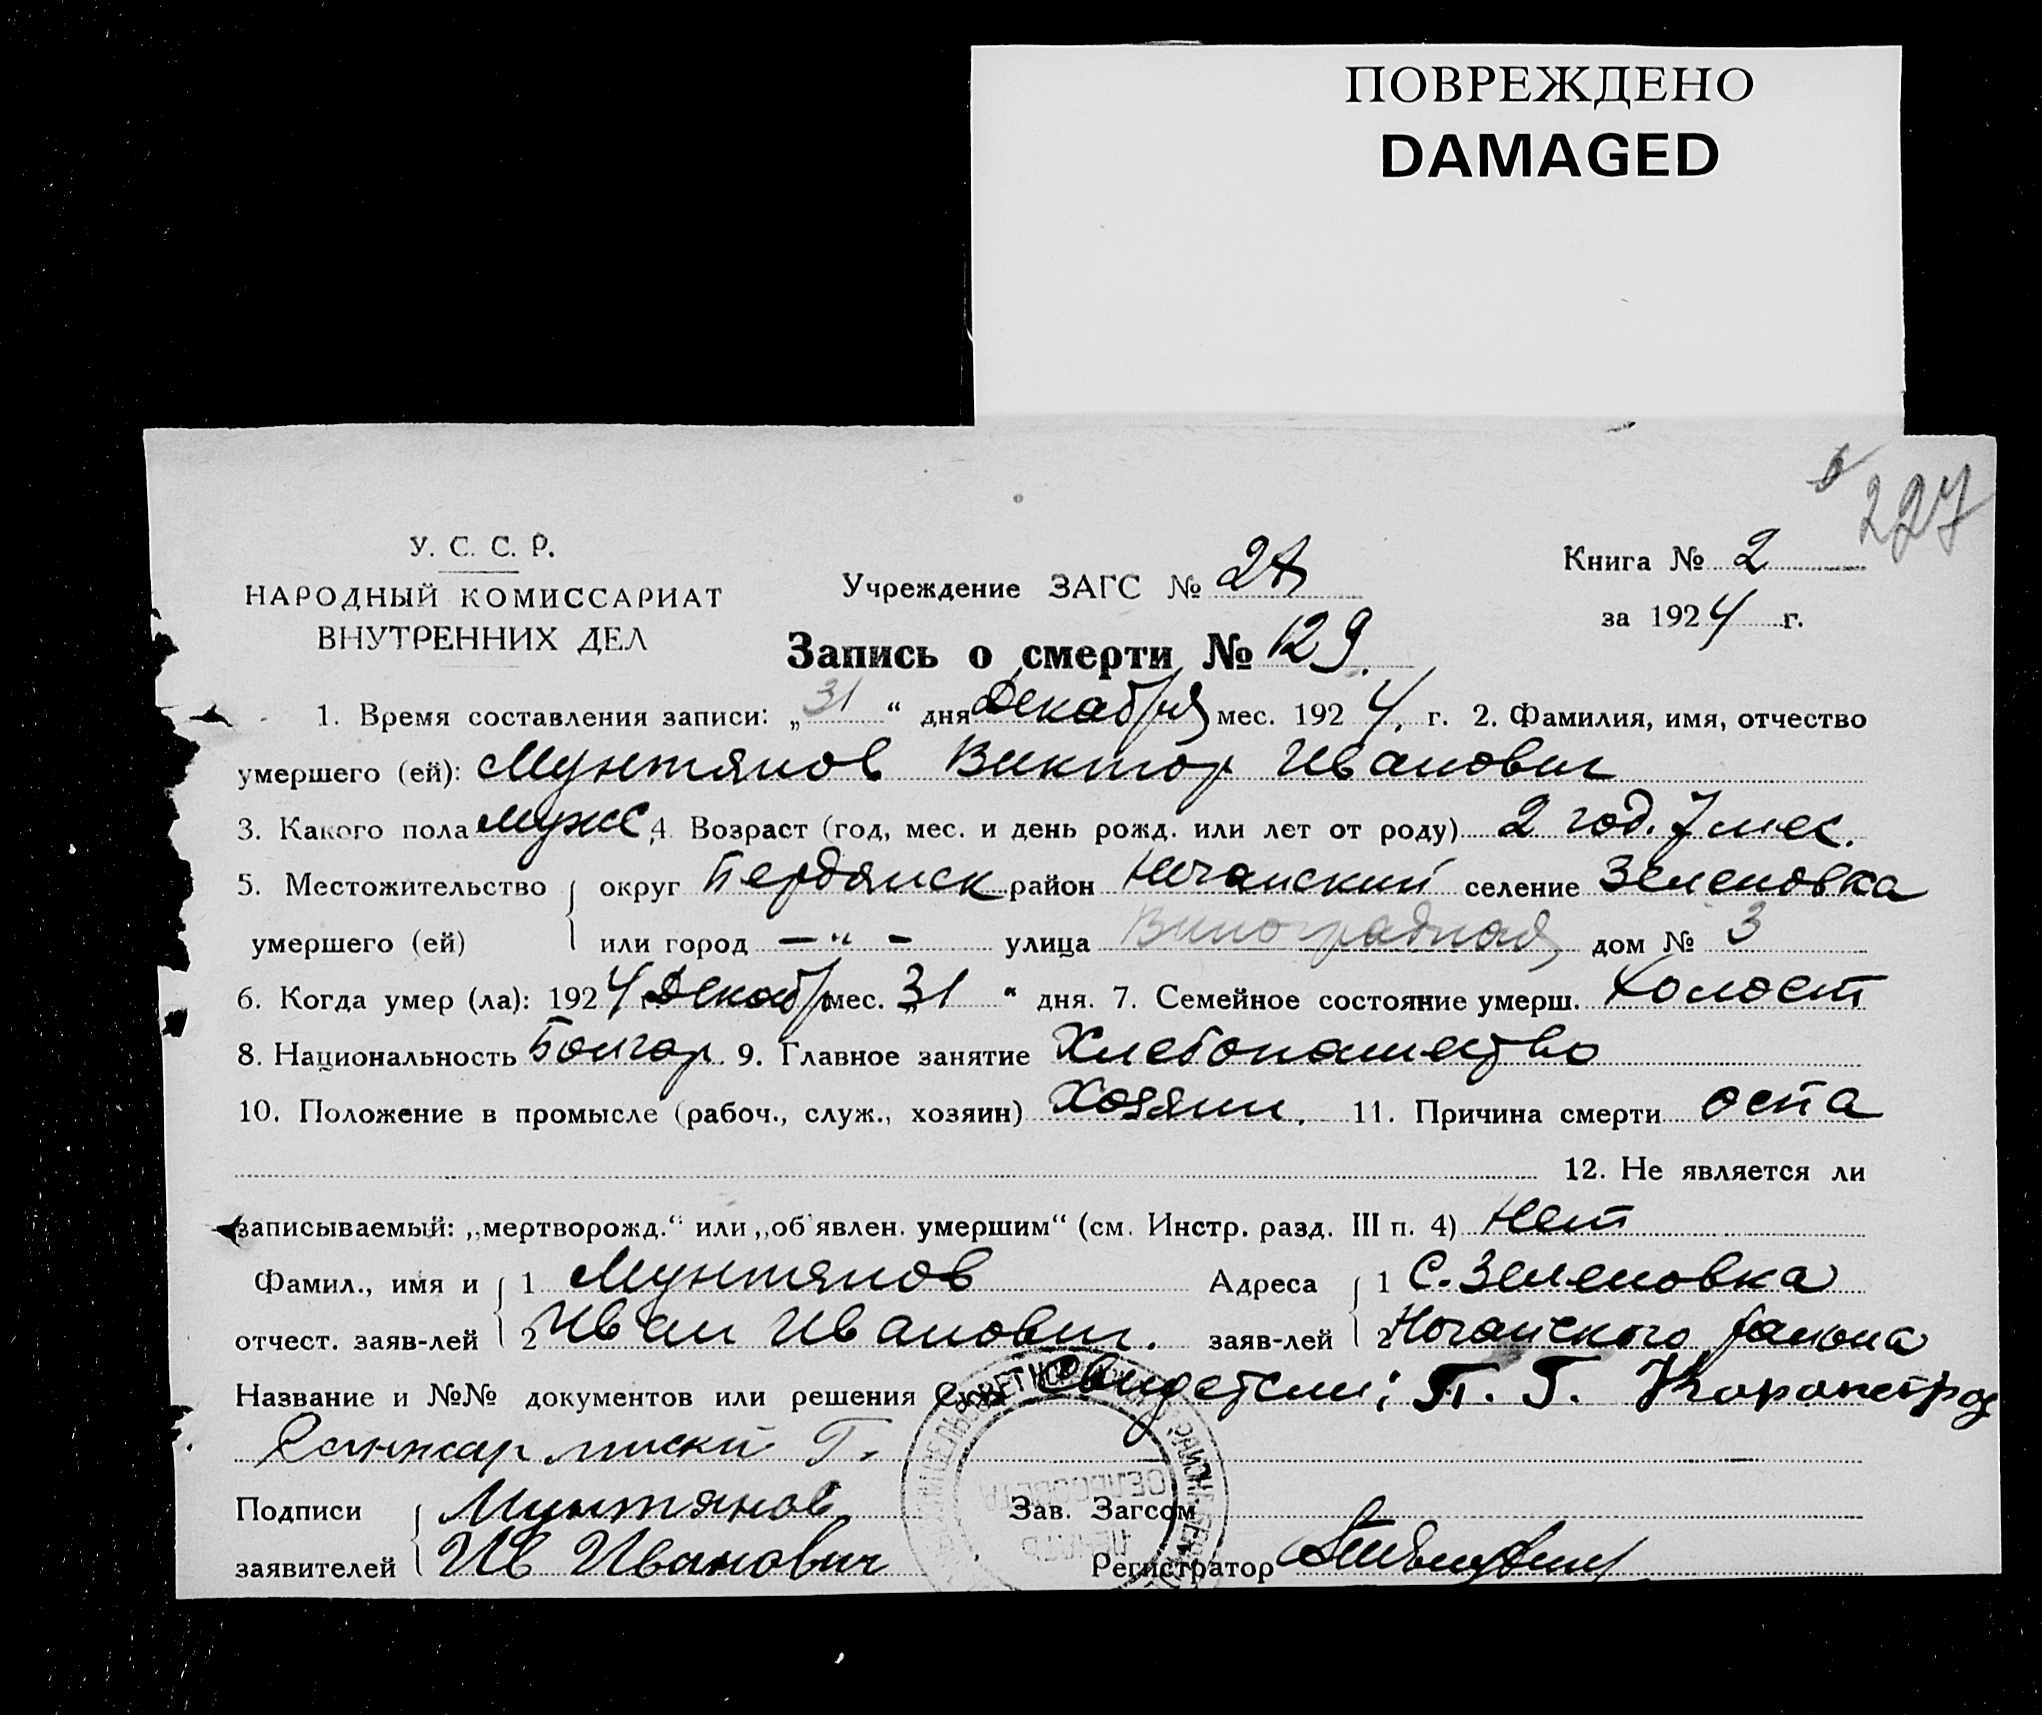 ПОВРЕЖДЕНО
DAMAGED
227
У. С. С. Р.
НАРОДНЫЙ КОМИССАРИАТ
ВНУТРЕННИХ ДЕЛ
Учреждение ЗАГС №
Книга № 2
за 1924 г.
Запись о смерти № 129.
1. Время составления записи: „31“ дня Декабря мес. 1924 г. 2. Фамилия, имя, отчество
умершего (ей): Мунтянов Виктор Иванович
3. Какого пола мужс 4. Возраст (год, мес. и день рожд. или лет от роду) 2 год. 7 мес.
5. Местожительство округ Бердянск район селение Зеленовка
умершего (ей) или город — „ — улица Виноградная дом № 3
6. Когда умер (ла): 1924 г. Декабр мес. „31“ дня. 7. Семейное состояние умерш. Холост
8. Национальность Болгар. 9. Главное занятие Хлебопашество
10. Положение в промысле (рабоч., служ., хозяин) Хозяин. 11. Причина смерти оспа
12. Не является ли
записываемый: „мертворожд.“ или „об'явлен. умершим“ (см. Инстр. разд. III п. 4) Нет
Фамил., имя и 1 Мунтянов Адреса 1 С. Зеленовка
отчест. заяв-лей 2 Иван Иванович. заяв-лей 2 Ногайского района
Название и №№ документов или решения Свидетели: П. Г.
Г.
Подписи Мунтянов Зав. Загсом
заявителей Ив Иванович Регистратор